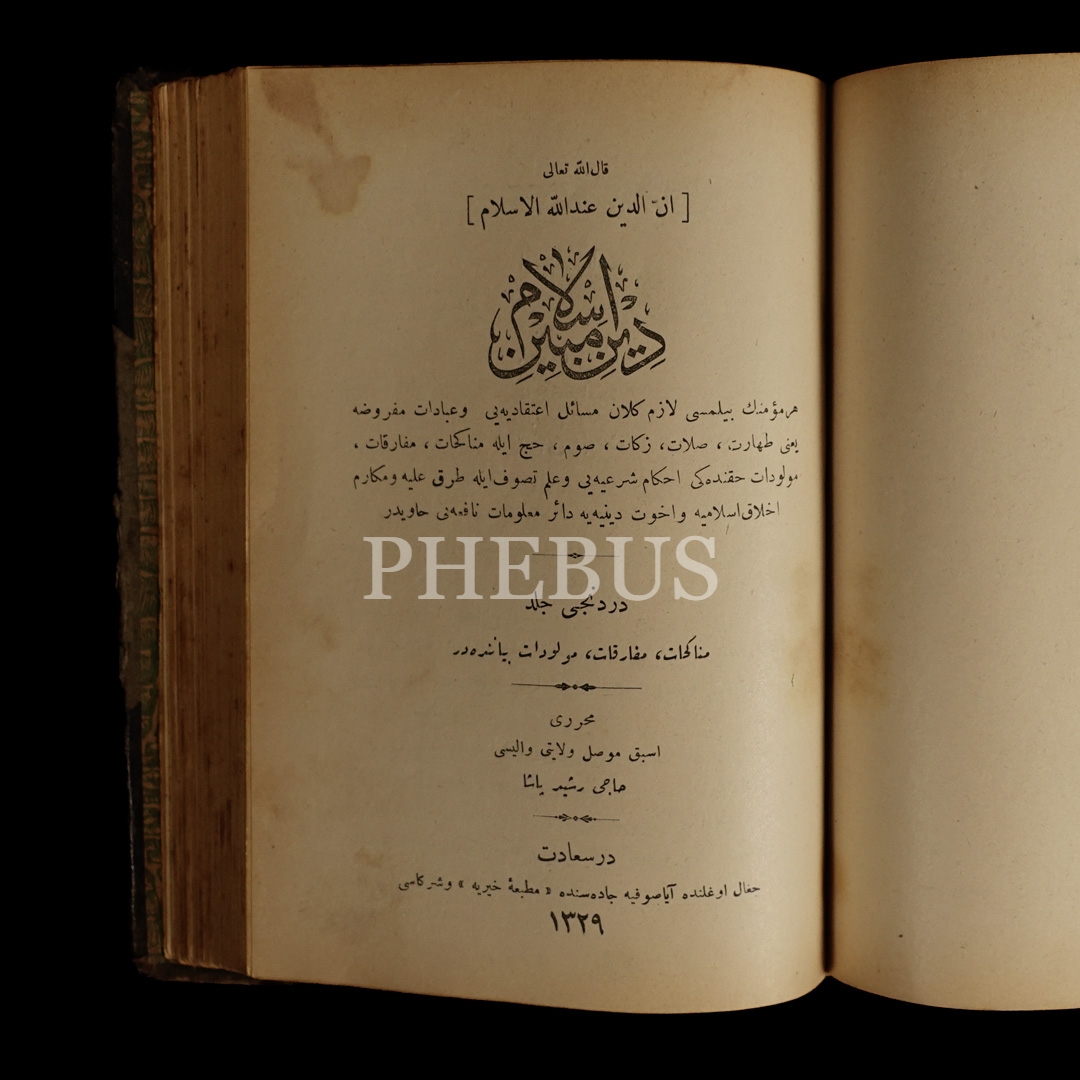 قال الله تعالى
[ انّ الدين عندالله الاسلام ]
دين مبين اسلام
هرمؤمنك بيلمسی لازم كلان مسائل اعتقاديه‌يی وعبادات مفروضه
يعنی طهارت ، صلات، زكات ، صوم ، حج ايله مناكحات ، مفارقات ،
مولودات حقنده‌كی احكام شرعيه‌يی وعلم تصوف ايله طرق عليه ومكارم
اخلاق اسلاميه واخوت دينيه‌يه دائر معلومات نافعه‌يی حاويدر
PHEBUS
دردنجی جلد
مناكحات، مفارقات، مولودات بياننده‌در
محرری
اسبق موصل ولايتی واليسی
حاجی رشيد پاشا
درسعادت
جغال اوغلنده آياصوفيه جاده‌سنده « مطبعهٔ خيريه » وشركاسی
١٣٢٩